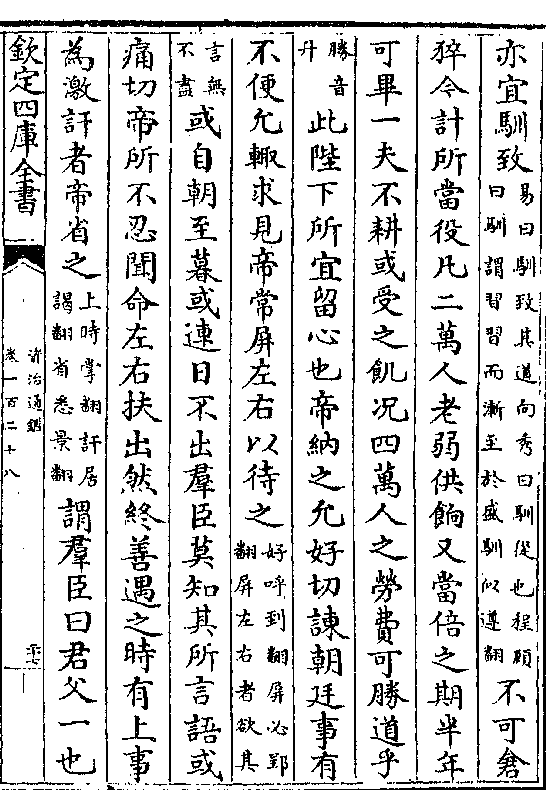 亦宜馴致易曰馴致其道向秀曰馴從也程頤曰馴謂習習而漸至於盛馴似遵翻不可倉
猝今計所當役凡二萬人老弱供餉又當倍之期半年
可畢一夫不耕或受之飢况四萬人之勞費可勝道乎
勝音升此陛下所宜留心也帝納之允好切諫朝廷事有
不便允輙求見帝常屏左右以待之好呼到翻屏必郢翻屏左右者欲其
言無不盡或自朝至暮或連日不出羣臣莫知其所言語或
痛切帝所不忍聞命左右扶出然終善遇之時有上事
為激訐者帝省之上時掌翻訐居謁翻省悉景翻謂羣臣曰君父一也
欽定四庫全書
資治通鑑
卷一百二十八
二十七